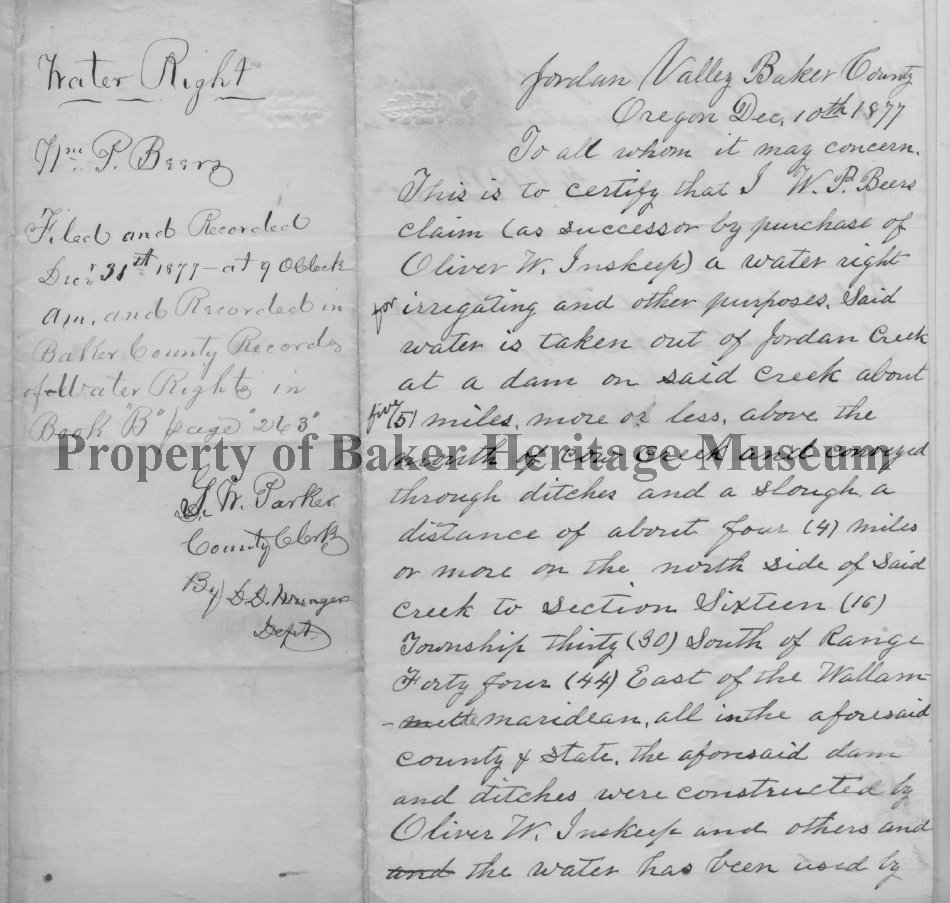 Water Right
Wm. P. Beers
Filed and Recorded
Decr 31st 1877 - at 9 OClock
am, and Recorded in
Baker County Records
of Water Rights in
Book "B" page "263"
S. W. Parker
County Clerk
By D. D.
Dept
Jordan Valley Baker County
Oregon Dec, 10th 1877
To all whom it may concern.
This is to certify that I W. P. Beers
claim (as successor by purchase of
Oliver W. Inskeep) a water right
for irregating and other purposes. Said
water is taken out of Jordan Creek
at a dam on said creek about
five (5) miles, more or less, above the
mouth of Cow creek and conveyed
through ditches and a slough a
distance of about four (4) miles
or more on the north side of said
creek to section Sixteen (16)
Township thirty (30) South of Range
Forty four (44) East of the Wallam-
-mette maridean, all in the aforesaid
county & state, the aforesaid dam
and ditches were constructed by
Oliver W. Inskeep and others and
and the water has been used by
Property of Baker Heritage Museum